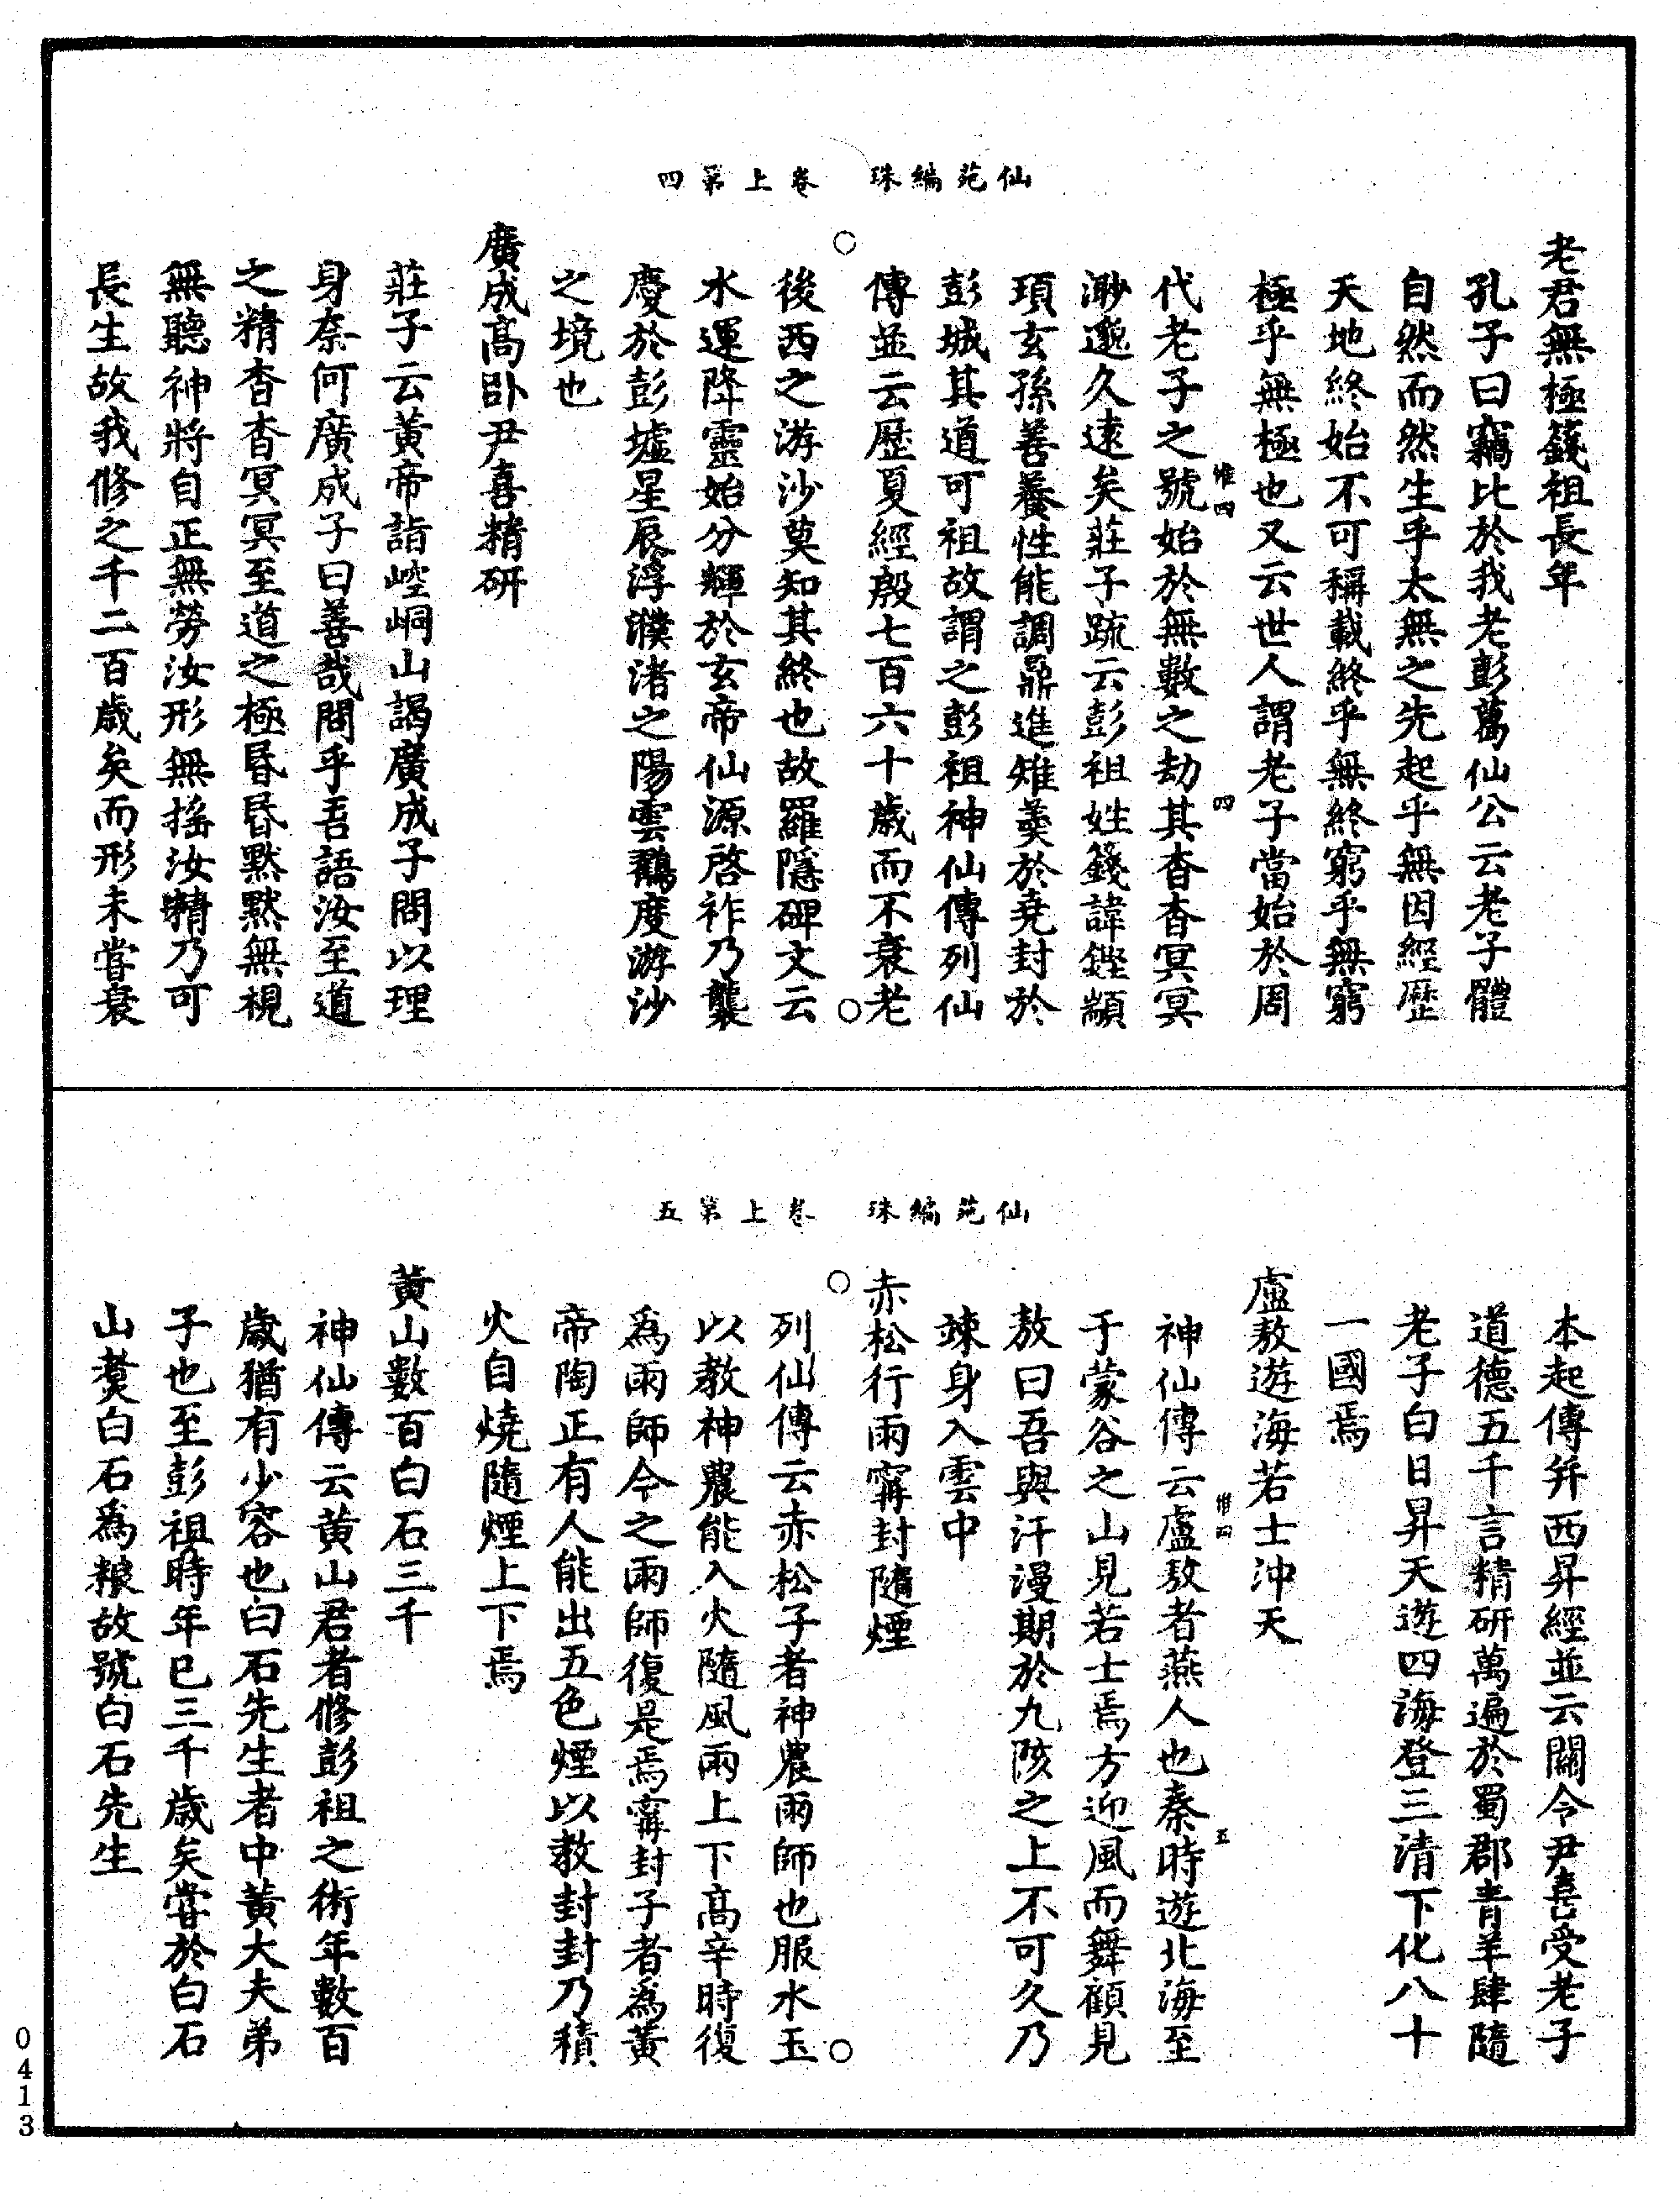 仙苑編珠　卷上第四
老君無極籛祖長年
孔子曰竊比於我老彭萬仙公云老子體
自然而然生乎太無之先起乎無因經歷
天地終始不可稱載終乎無終窮乎無窮
極乎無極也又云世人謂老子當始於周
惟四　四
代老子之號始於無數之劫其杳杳冥冥
渺邈久遠矣莊子疏云彭祖姓籛諱鏗顓
頊玄孫善養性能調鼎進雉羹於堯封於
彭城其道可祖故謂之彭祖神仙傳列仙
傳並云歷夏經殷七百六十歲而不衰老
後西之游沙莫知其終也故羅隱碑文云
水運降靈始分輝於玄帝仙源啓祚乃襲
慶於彭墟星辰浮濮渚之陽雲鸛度游沙
之境也
廣成高臥尹喜精研
莊子云黃帝詣崆峒山謁廣成子問以理
身奈何廣成子曰善哉問乎吾語汝至道
之精杳杳冥冥至道之極昏昏默默無視
無聽神將自正無勞汝形無搖汝精乃可
長生故我修之千二百歲矣而形未嘗衰
仙苑編珠　卷上第五
本起傳并西昇經並云關令尹喜受老子
道德五千言精研萬遍於蜀郡青羊肆隨
老子白日昇天遊四海登三清下化八十
一國焉
盧敖遊海若士沖天
惟四　五
神仙傳云盧敖者燕人也秦時遊北海至
于蒙谷之山見若士焉方迎風而舞顧見
敖曰吾與汗漫期於九陔之上不可久乃
竦身入雲中
赤松行雨甯封隨煙
列仙傳云赤松子者神農雨師也服水玉
以教神農能入火隨風雨上下高辛時復
爲雨師今之雨師復是焉甯封子者爲黃
帝陶正有人能出五色煙以教封封乃積
火自燒隨煙上下焉
黃山數百白石三千
神仙傳云黃山君者修彭祖之術年數百
歲猶有少容也白石先生者中黃大夫弟
子也至彭祖時年已三千歲矣嘗於白石
山煑白石爲粮故號白石先生
0413